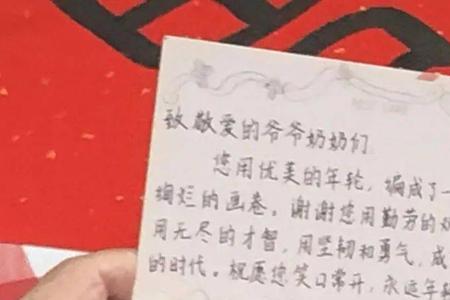 致敬爱的爷爷奶奶们
您用优美的年轮，编成了一
绚烂的画卷。谢谢您用勤劳的
用无尽的才智，用坚韧和勇气，成
的时代。祝愿您笑口常开，永远年轻